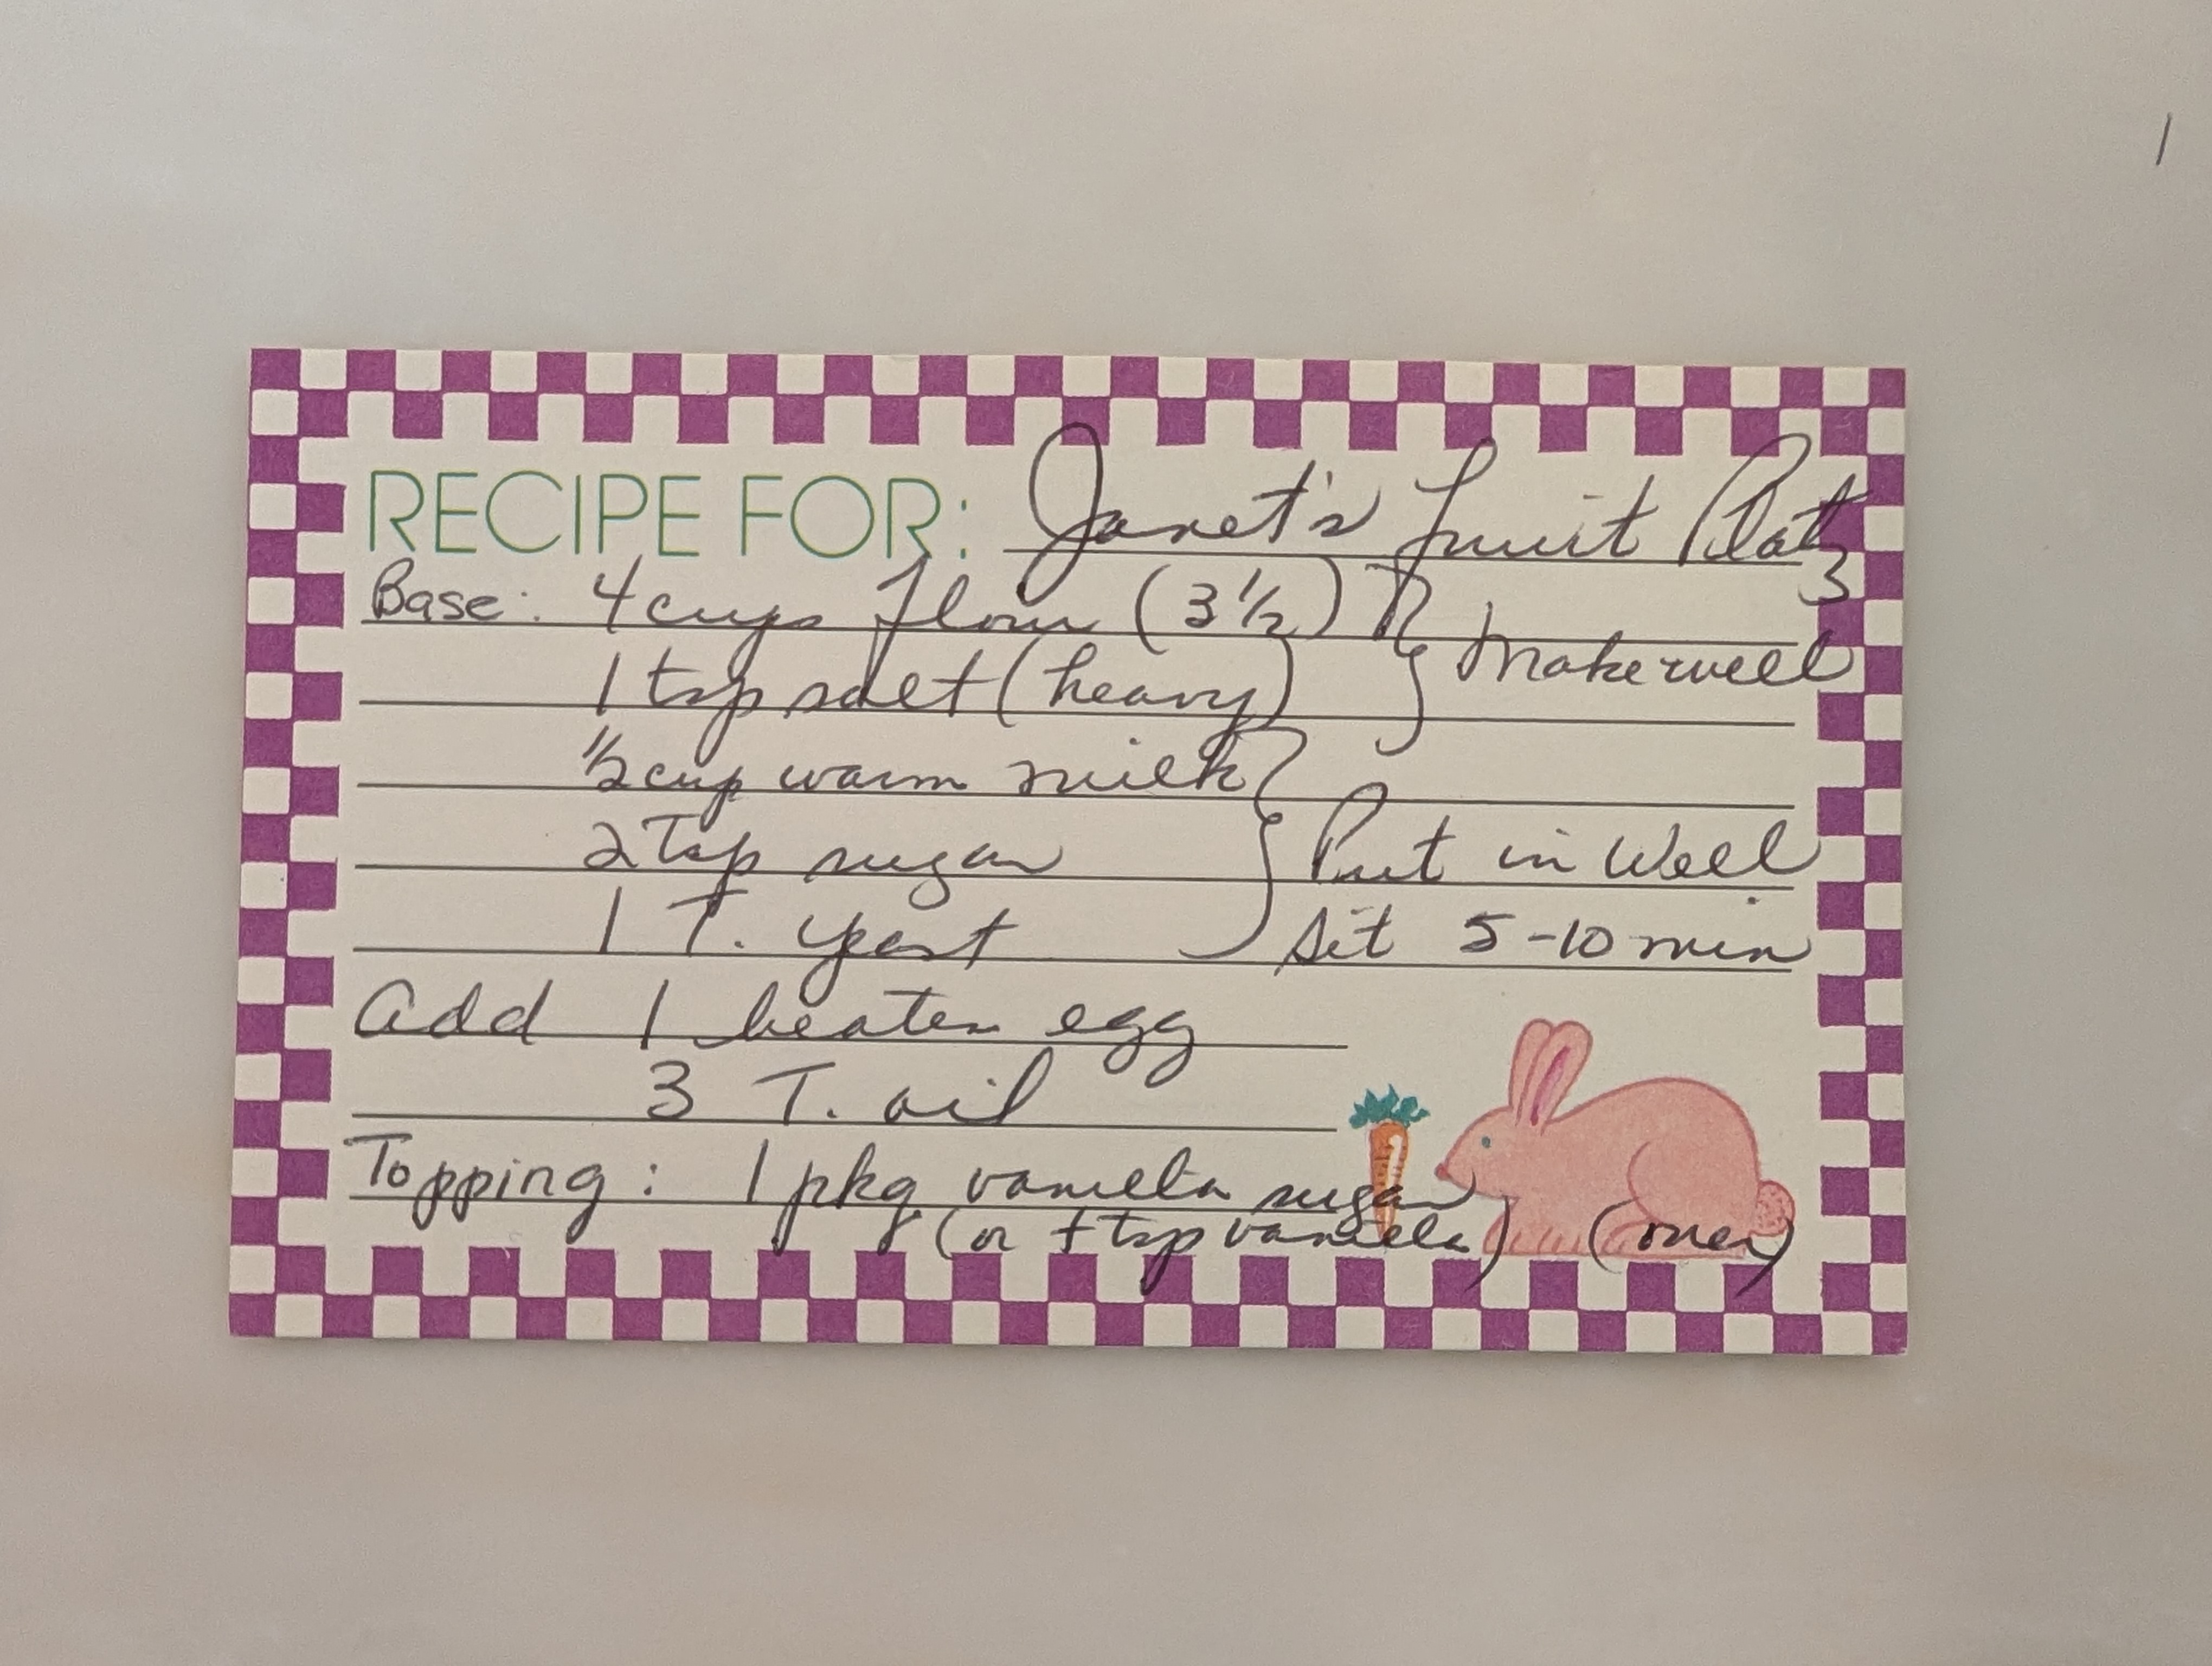 RECIPE FOR: Janet's Fruit Platz
Base: 4 cups flour (3 1/2)
1 tsp salt (heavy) } Make well
1/2 cup warm milk
2 Tsp sugar } Put in Well
1 T. yeast Sit 5-10 min
Add 1 beaten egg
3 T. oil
Topping: 1 pkg vanilla sugar
(or 1 tsp vanilla) (over)